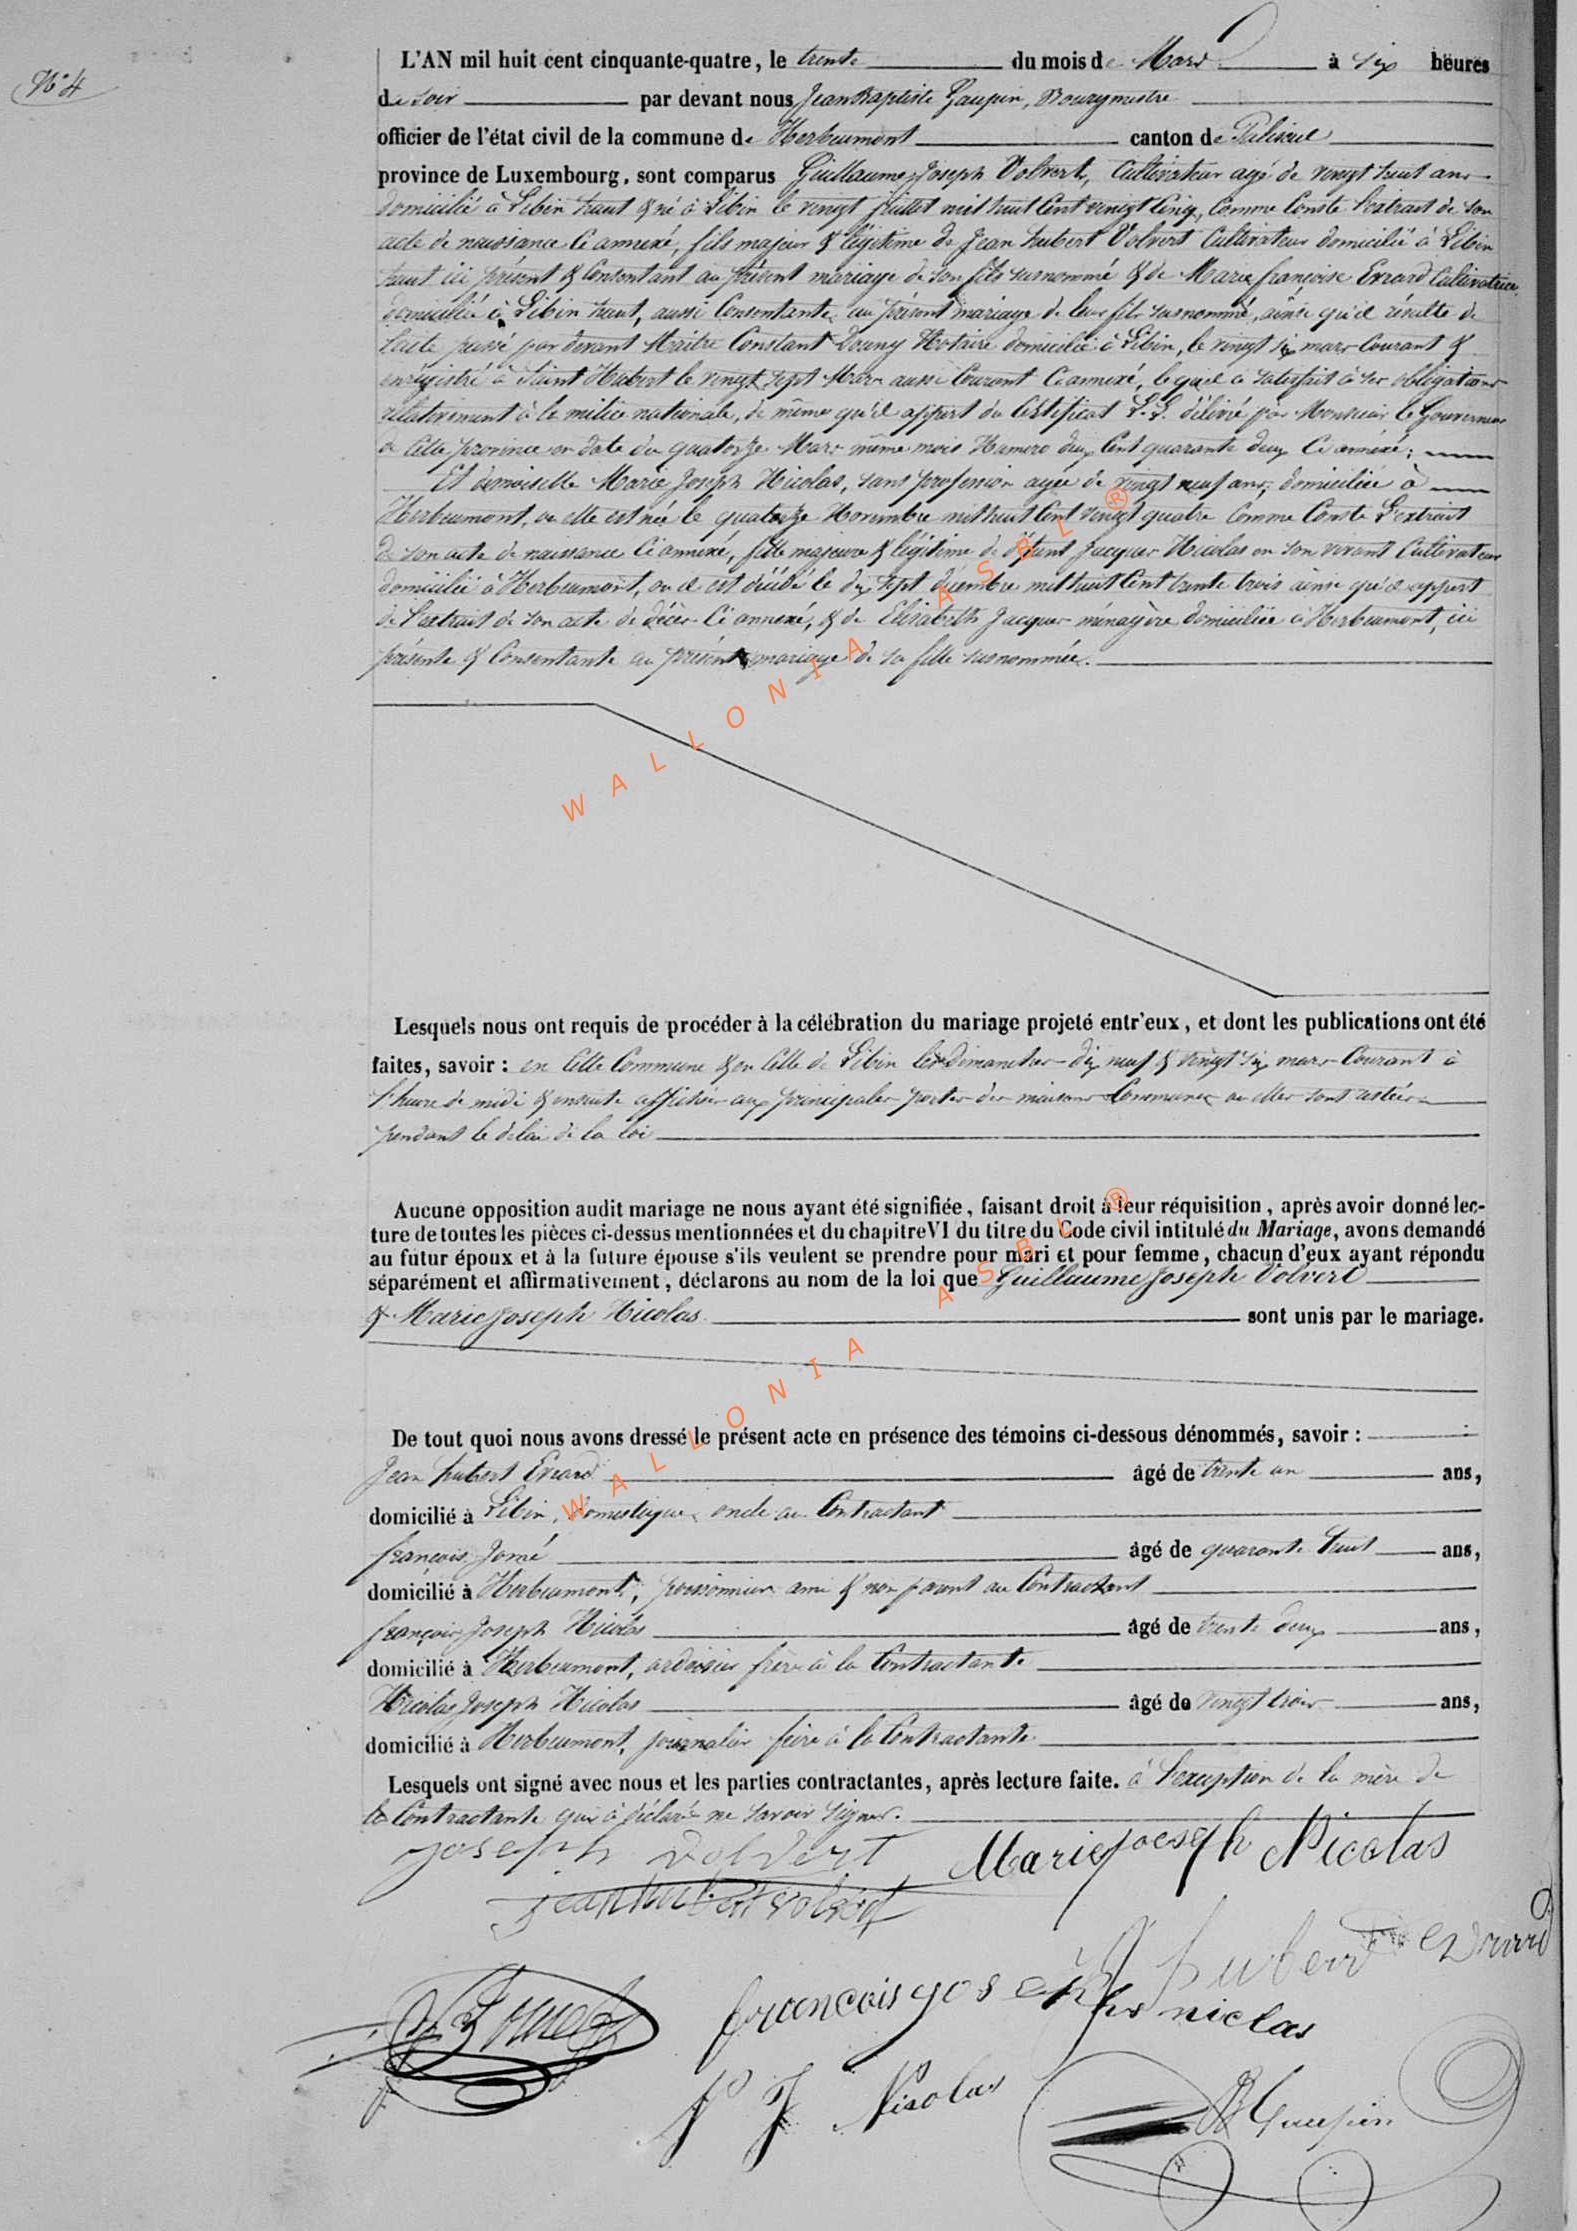 N° 4
L'AN mil huit cent cinquante-quatre, le trente du mois de Mars à six heures
de soir par devant nous Jean Baptiste Gaupin, Bourgmestre
officier de l'état civil de la commune de Herbeumont canton de Paliseul
province de Luxembourg, sont comparus Guillaume Joseph Volvert, Cultivateur agé de vingt huit ans
domicilié à Libin haut & né à Libin le vingt juillet mil huit Cent vingt Cinq, Comme Conste l'extrait de son
acte de naissance Ci annexé, fils majeur & légitime de Jean hubert Volvert Cultivateur domicilié à Libin
haut ici présent & Consentant au présent mariage de son fils susnommé & de Marie françoise Evrard Cultivatrice
domiciliée à Libin haut, aussi Consentante au présent mariage de leur fils susnommé, ainsi qu'il résulte de
l'acte passé par devant Maitre Constant Douny Notaire domicilié à Libin, le vingt six mars Courant &
enregistré à Saint Hubert le vingt sept Mars aussi Courant Ci annexé, lequel a satisfait à ses obligations
relativement à la milice nationale, de même qu'il appert du Certificat L.L. délivré par Monsieur le Gouverneur
de Cette province en date du quatorze Mars même mois Numero deux Cent quarante deux Ci annexé;
Et demoiselle Marie Joseph Nicolas, sans profession agée de vingt neuf ans, domiciliée à
Herbeumont, ou elle est née le quatorze Novembre mil huit Cent vingt quatre Comme Conste l'extrait
de son acte de naissance Ci annexé, fille majeure & légitime de défunt Jacques Nicolas en son vivant Cultivateur
domicilié à Herbeumont, ou il est décédé le dix sept décembre mil huit Cent trente trois ainsi qu'il appert
de l'extrait de son acte de décès Ci annexé, & de Elisabeth Jacques ménagère domiciliée à Herbeumont, ici
présente & Consentante au présent mariage de sa fille susnommée.
WALLONIA ASBL ®
Lesquels nous ont requis de procéder à la célébration du mariage projeté entr'eux, et dont les publications ont été
faites, savoir : en Cette Commune & en Celle de Libin les dimanches dix neuf & vingt six mars Courant à
l'heure de midi & ensuite affichées aux principales portes des maisons Communes ou elles sont restées
pendant le délai de la loi
Aucune opposition audit mariage ne nous ayant été signifiée, faisant droit à leur réquisition, après avoir donné lec-
ture de toutes les pièces ci-dessus mentionnées et du chapitre VI du titre du Code civil intitulé du Mariage, avons demandé
au futur époux et à la future épouse s'ils veulent se prendre pour mari et pour femme, chacun d'eux ayant répondu
séparément et affirmativement, déclarons au nom de la loi que Guillaume Joseph Volvert
& Marie Joseph Nicolas sont unis par le mariage.
WALLONIA ASBL ®
De tout quoi nous avons dressé le présent acte en présence des témoins ci-dessous dénommés, savoir :
Jean hubert Evrard âgé de trente un ans,
domicilié à Libin, domestique, oncle au Contractant
françois Jomé âgé de quarante huit ans,
domicilié à Herbeumont, ami & non parent au Contractant
françois Joseph Nicolas âgé de trente deux ans,
domicilié à Herbeumont, ardoisier frère à la Contractante
Nicolas Joseph Nicolas âgé de vingt trois ans,
domicilié à Herbeumont, journalier frère à la Contractante
Lesquels ont signé avec nous et les parties contractantes, après lecture faite. à l'exception de la mère de
la Contractante qui à déclaré ne savoir signer.
joseph volvert Marie joesph Nicolas
jean hubert volvert
hubert evrard
françois joseph niclas
N J Nicolas
JB Gaupin